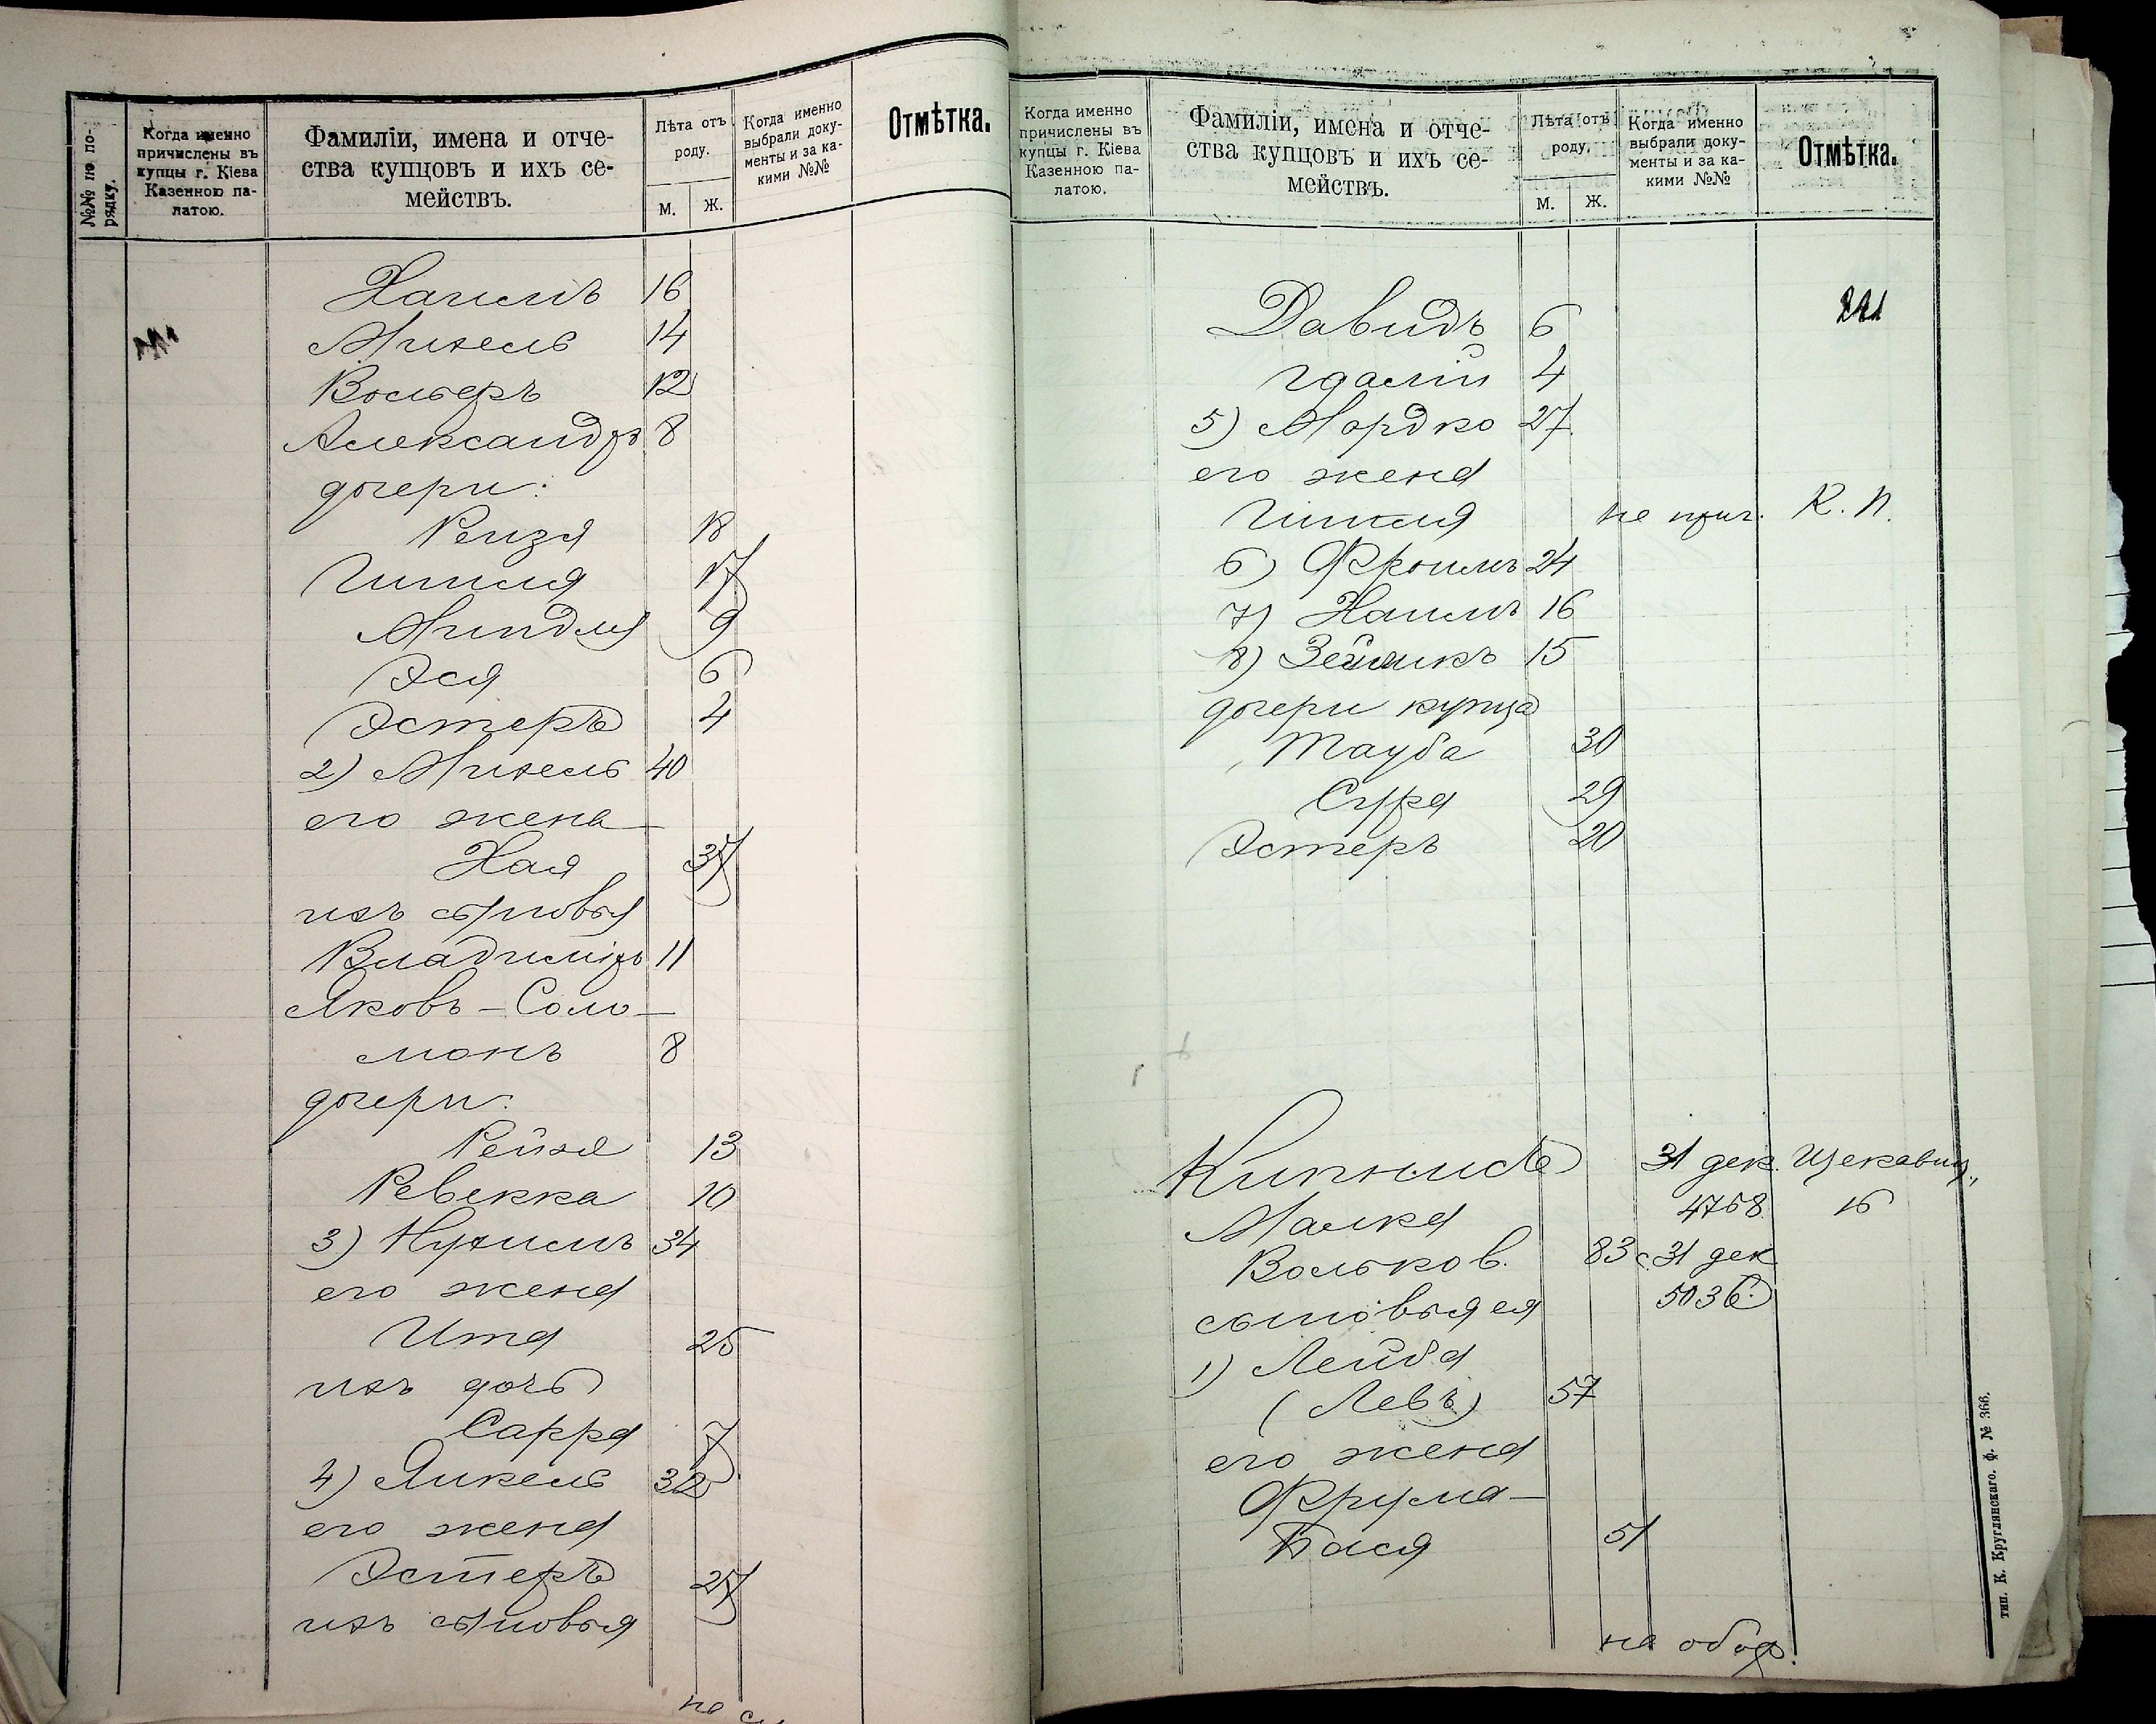 №№ по по-
рядку.
Когда именно
причислены въ
купцы г. Кіева
Казенною па-
латою.
Фамиліи, имена и отче-
ства купцовъ и ихъ се-
мействъ.
Лѣта отъ
роду.
М. Ж.
Когда именно
выбрали доку-
менты и за ка-
кими №№
Отмѣтка.
Хаимъ 16
Михель 14
Вольфъ 12
Александръ 8
дочери:
Рейзя 18
Гитля 17
Миндля 9
Эся 6
Эстеръ 4
2) Михель 40
его жена
Хая 37
ихъ сыновья
Владиміръ 11
Яковъ-Соло-
монъ 8
дочери:
Рейзя 13
Ревекка 10
3) Нухимъ 34
его жена
Ита 25
ихъ дочь
Сарра 7
4) Янкель 32
его жена
Эстеръ 27
ихъ сыновья
Когда именно
причислены въ
купцы г. Кіева
Казенною па-
латою.
Фамиліи, имена и отче-
ства купцовъ и ихъ се-
мействъ.
Лѣта отъ
роду.
М. Ж.
Когда именно
выбрали доку-
менты и за ка-
кими №№
Отмѣтка.
221
Давидъ 6
Гдалій 4
5) Мордко 27
его жена
Гитля не прич. К. П.
6) Фроимъ 24
7) Хаимъ 16
8) Зейликъ 15
дочери купца
Тауба 30
Сура 29
Эстеръ 20
Кипнисъ 31 дек. Щекавиц.,
4758 16
Малка
Вольков. 83 с 31 дек
5036
сыновья ея
1) Лейба
(Левъ) 57
его жена
Фрума-
Бася 51
на обор.
тип. К. Круглянскаго. ф. № 366.